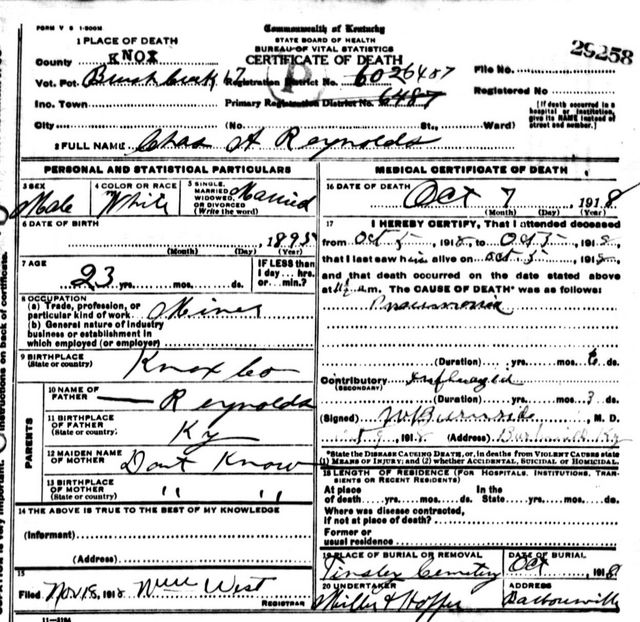 FORM V S 1-500M
Commonwealth of Kentucky
STATE BOARD OF HEALTH
BUREAU OF VITAL STATISTICS
CERTIFICATE OF DEATH
29258
1 PLACE OF DEATH
County KNOX
File No.
Vot. Pct. Brush Creek 17 Registration District No. 6026487
Registered No.
Inc. Town Primary Registration District No. 6487
[If death occurred in a hospital or institution, give its NAME instead of street and number.]
City (No. St., Ward)
2 FULL NAME Chas A Reynolds
PERSONAL AND STATISTICAL PARTICULARS
3 SEX Male
4 COLOR OR RACE White
5 SINGLE, MARRIED WIDOWED, OR DIVORCED (Write the word) Married
6 DATE OF BIRTH
1895
(Month) (Day) (Year)
7 AGE
23 yrs. mos. ds.
IF LESS than 1 day... hrs. or... min.?
8 OCCUPATION
(a) Trade, profession, or particular kind of work Miner
(b) General nature of industry
business or establishment in
which employed (or employer)
9 BIRTHPLACE
(State or country) Knox Co
PARENTS
10 NAME OF FATHER — Reynolds
11 BIRTHPLACE OF FATHER
(State or country) Ky
12 MAIDEN NAME OF MOTHER Dont Know
13 BIRTHPLACE OF MOTHER
(State or country) " "
14 THE ABOVE IS TRUE TO THE BEST OF MY KNOWLEDGE
(Informant)
(Address)
15
Filed Nov 15, 1918 Wm West
REGISTRAR
11-3184
MEDICAL CERTIFICATE OF DEATH
16 DATE OF DEATH
Oct 7 1918
(Month) (Day) (Year)
17 I HEREBY CERTIFY, That I attended deceased
from Oct 5, 1918 to Oct 5, 1918
that I last saw him alive on Oct 5, 1918
and that death occurred on the date stated above
at m. The CAUSE OF DEATH* was as follows:
Pneumonia
(Duration) yrs. mos. 6 ds.
Contributory Influenza
(SECONDARY)
(Duration) yrs. mos. 3 ds.
(Signed) Burnside, M. D.
1918 (Address) Ky
*State the DISEASE CAUSING DEATH, or, in deaths from VIOLENT CAUSES state
(1) MEANS OF INJURY; and (2) whether ACCIDENTAL, SUICIDAL or HOMICIDAL.
18 LENGTH OF RESIDENCE (FOR HOSPITALS, INSTITUTIONS, TRANSIENTS OR RECENT RESIDENTS)
At place of death yrs. mos. ds. In the State yrs. mos. ds.
Where was disease contracted,
if not at place of death?
Former or
usual residence
19 PLACE OF BURIAL OR REMOVAL
Tinsley Cemetry
DATE OF BURIAL
Oct 1918
20 UNDERTAKER
Miller & Hopper
ADDRESS
Barbourville